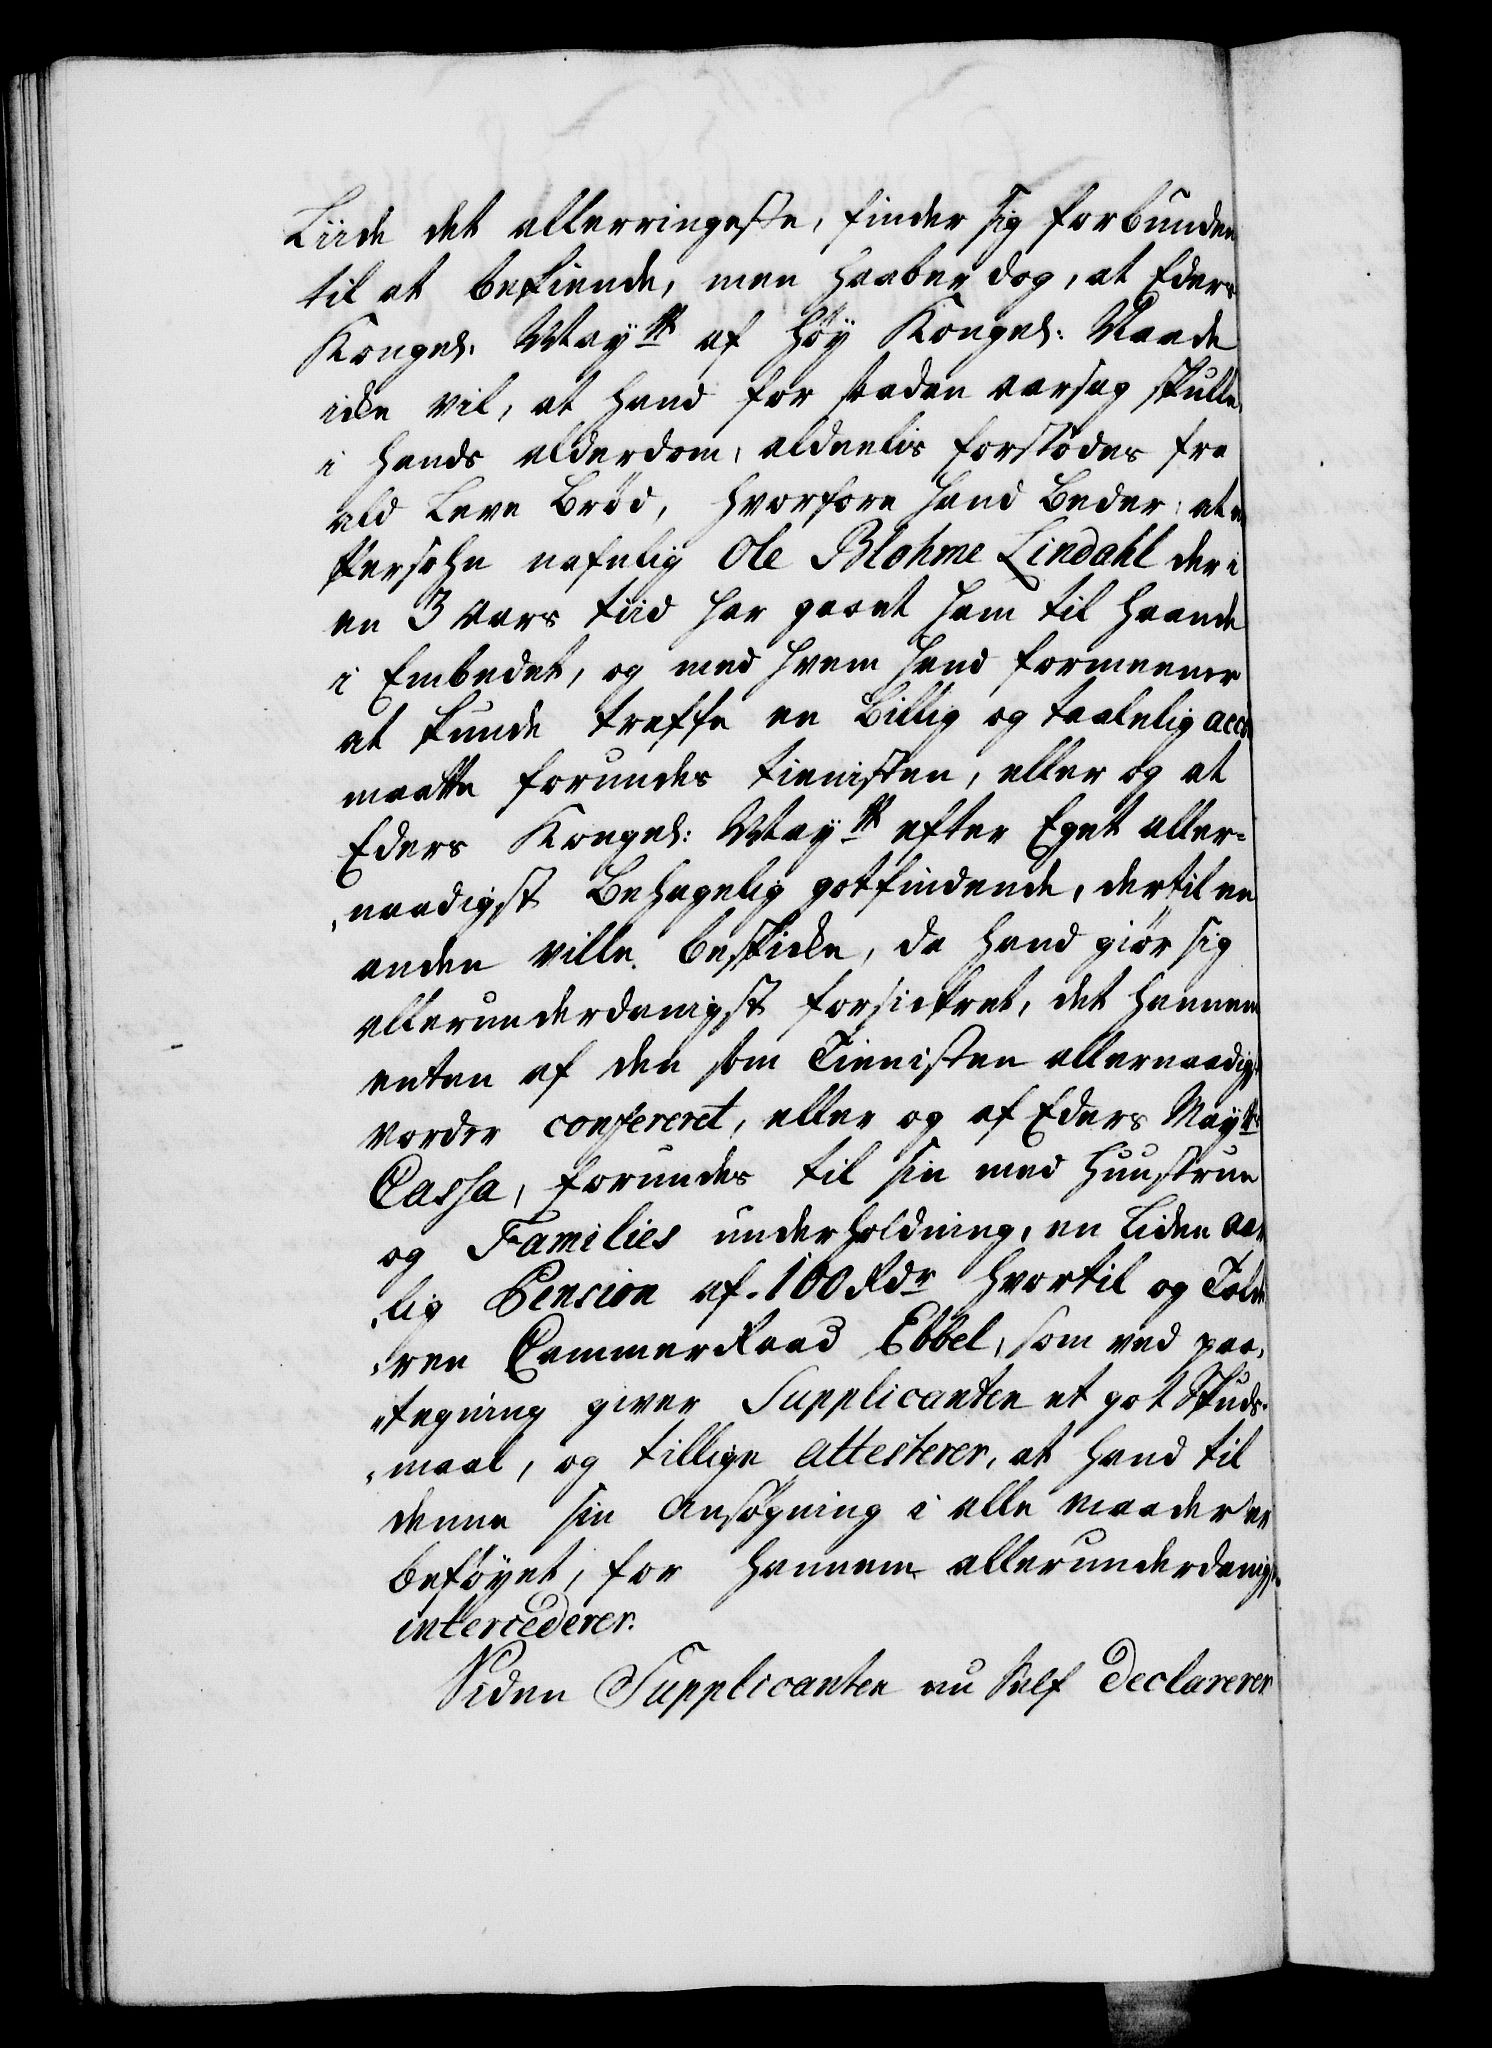 Liide det allerringeste, finder sig forbunden
til at bekiende, men haaber dog, at Eders
Kongel. Mayᵗᵗ af høy Kongel: Naade
icke vil, at hand for saadan aarsag skulle
i hands alderdom, aldeelis forstødes fra
ald Leve Brød, hvorfore hand Beder, at en
Persohn nafnlig Ole Blohme Lindahl der i
en 3 aars tiid har gaaet ham til haande
i Embedet, og med hvem hand formeener
at kunde treffe en Billig og taalelig acco
maatte forundes tienisten, eller og at
Eders Kongel: Mayᵗᵗ efter Eget aller-
naadigst Behagelig gotfindende, dertil en
anden ville beskicke, da hand giør sig
allerunderdanigst forsickret, det hannem
enten af den som Tienisten allernaadigst
vorder confereret, eller og af Eders Mayᵗᵗˢ
Cassa, forundes til sin med Huustrue
og Families underholdning, en liden aar
lig Pension af 100 Rdr hvortil og Tolde
ren CammerRaad Ebbel, som ved paa-
tegning giver Supplicanten et got Skuds-
maal, og tillige attesterer, at hand til
denne sin ansøgning i alle maader er
beføyet, for hannem allerunderdanigst
intercederer.
Siden Supplicanten nu Self declarerer